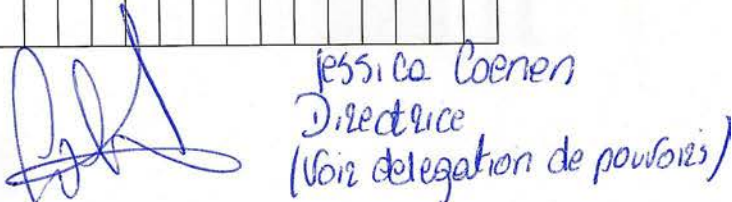 Jessica Coenen
Directrice
(Voir delegation de pouvoirs)